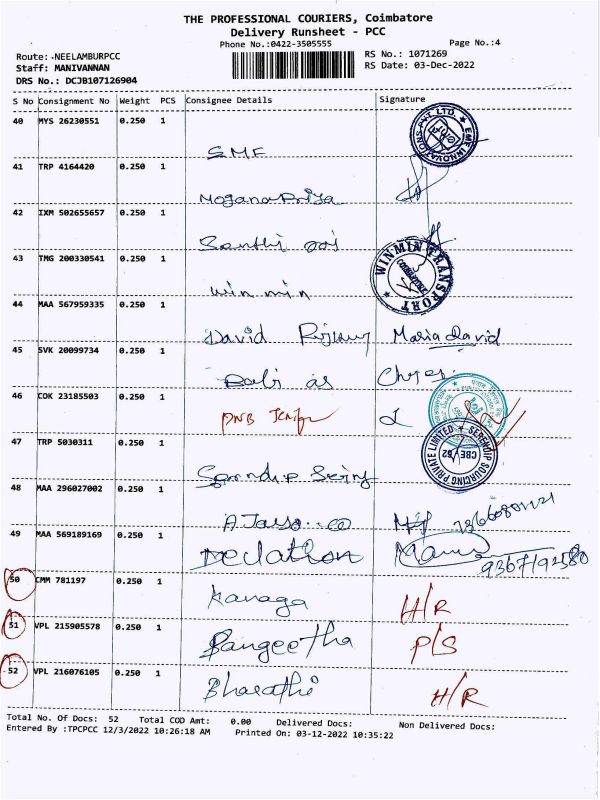 THE PROFESSIONAL COURIERS, Coimbatore
Delivery Runsheet - PCC
Phone No.:0422-3505555
Page No.:4
Route: -NEELAMBURPCC
RS No.: 1071269
Staff: MANIVANNAN
RS Date: 03-Dec-2022
DRS No.: DCJB107126904
S No Consignment No Weight PCS Consignee Details Signature
40 MYS 26230551 0.250 1
EMF INNOVATIONS PVT LTD.
SMF
41 TRP 4164420 0.250 1
MoganaPriya
42 IXM 502655657 0.250 1
Santhi
43 TMG 200330541 0.250 1
WINMIN TRANSPORT
COIMBATORE
win min
44 MAA 567959335 0.250 1
David Maria david
45 SVK 20099734 0.250 1
46 COK 23185503 0.250 1
PNB
47 TRP 5030311 0.250 1
SERENDIP SOURCING PRIVATE LIMITED
CBE-62
48 MAA 296027002 0.250 1
49 MAA 569189169 0.250 1
Declation
50 CMM 781197 0.250 1
Kanaga H/R
51 VPL 215905578 0.250 1
Sangeetha P/S
52 VPL 216076105 0.250 1
Bharathi H/R
Total No. Of Docs: 52 Total COD Amt: 0.00 Delivered Docs: Non Delivered Docs:
Entered By :TPCPCC 12/3/2022 10:26:18 AM Printed On: 03-12-2022 10:35:22